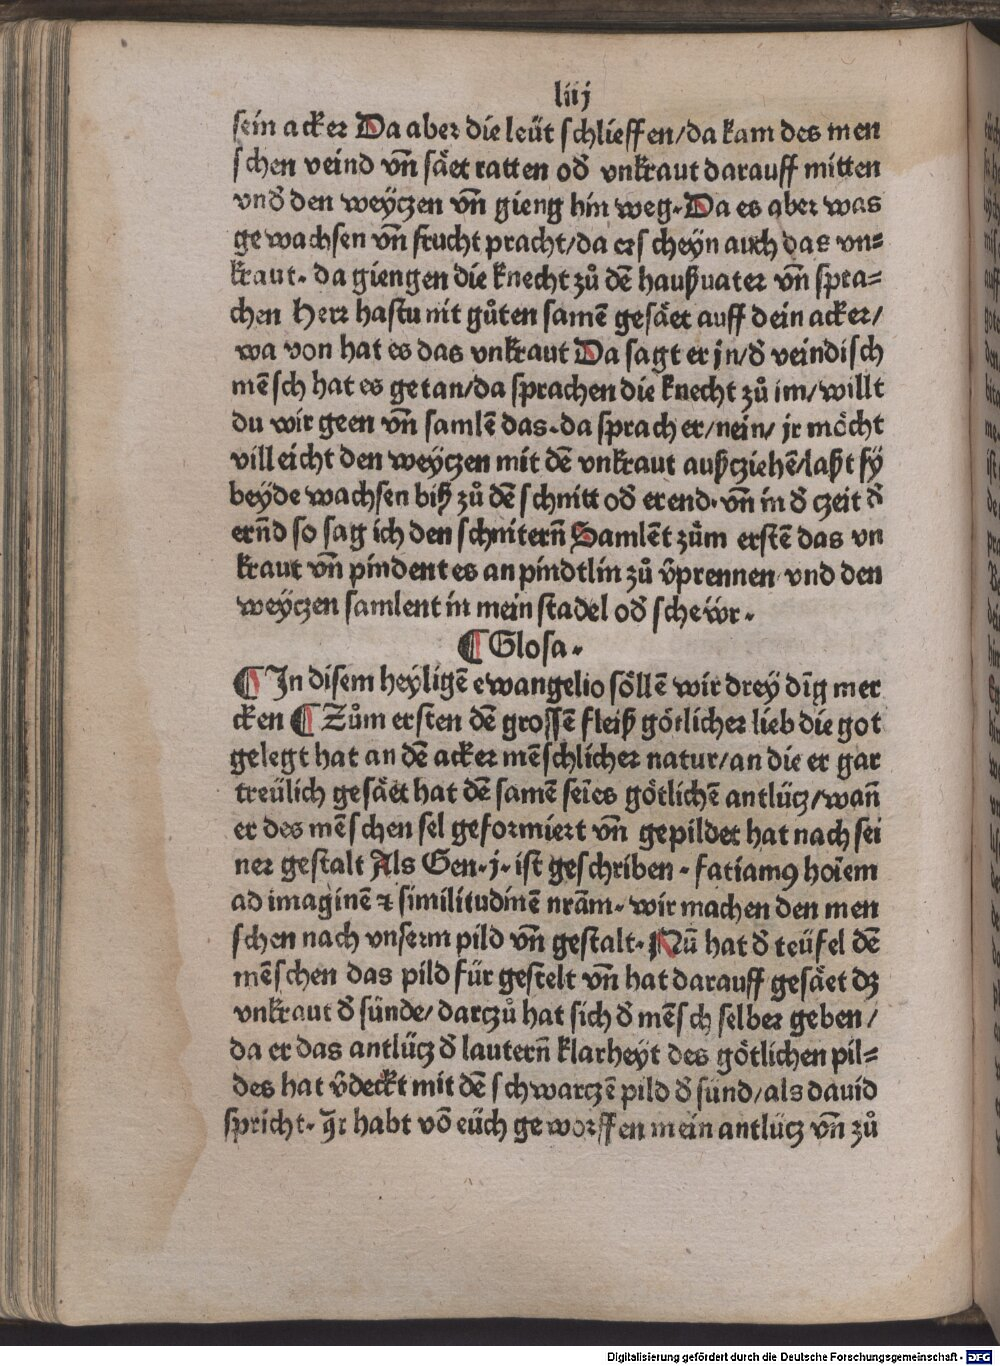 liij
sein acker Da aber die leüt schlieffen/da kam des men
schen veind vn̄ säet ratten od̄ vnkraut darauff mitten
vnd̄ den weyczen vn̄ gieng hin weg. Da es aber was
gewachsen vn̄ frucht pracht/da erscheyn auch das vn=
kraut. da giengen die knecht zů dē haußuater vn̄ spra=
chen Herr hastu nit gůten samē gesäet auff dein acker/
wa von hat es das vnkraut Da sagt er jn/d̄ veindisch
mēsch hat es getan/da sprachen die knecht zů im/willt
du wir geen vn̄ samlē das. da sprach er/nein/ jr möcht
villeicht den weyczen mit dē vnkraut außcziehē/laßt sy
beyde wachsen biß zů dē schnitt od̄ erend. vn̄ in d̄ czeit d̄
ern̄d so sag ich den schnitern̄ Samlēt zům erstē das vn
kraut vn̄ pindent es an pindtlin zů v̄prennen vnd den
weyczen samlent in mein stadel od̄ schewr.
¶ Glosa.
¶ In disem heyligē ewangelio söllē wir drey dīg mer
cken ¶ Zům ersten dē grossē fleiß götlicher lieb die got
gelegt hat an dē acker mēschlicher natur/an die er gar
treülich gesäet hat dē samē seīes götlichē antlücz/wan̄
er des mēschen sel geformiert vn̄ gepildet hat nach sei
ner gestalt Als Gen. j. ist geschriben. fatiamꝰ hoīem
ad imaginē ⁊ similitudinē nrām. wir machen den men
schen nach vnserm pild vn̄ gestalt. Nū hat d̄ teüfel dē
mēschen das pild für gestelt vn̄ hat darauff gesäet dz
vnkraut d̄ sünde/ darczů hat sich d̄ mēsch selber geben/
da er das antlücz d̄ lautern̄ klarheyt des götlichen pil=
des hat v̄deckt mit dē schwarczē pild d̄ sünd/als dauid
spricht. Jr habt vō eüch geworffen mein antlücz vn̄ zů
Digitalisierung gefördert durch die Deutsche Forschungsgemeinschaft - DFG